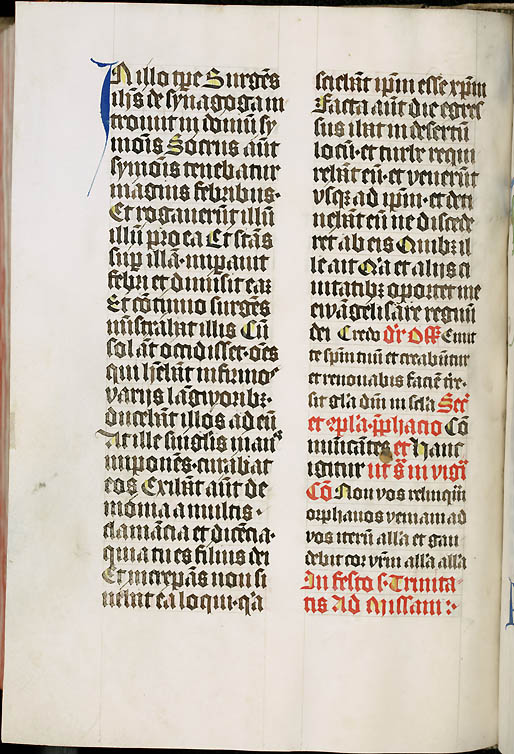 In illo tp̄e Surgēs
ih̄s de synagoga in
troiuit in domū sy
mōis Socrus aūt
symōis tenebatur
magnis febribus·
Et rogauerūt illū
illū pro ea Et stās
sup̄ illā· imp̄auit
febri et dimisit eaz
Et cōtinuo surgēs
mīstrabat illis Cū
sol āt occidisset· oēs
qui h̄ebāt infirmos
varijs lāgworibz·
ducebāt illos ad eū
At ille singlis man⁹
imponēs· curabat
eos Exibāt aūt de
monia a multis·
clamācia et dicēcia·
quia tu es filius dei
Et increpās non si
nebat ea loqui· q̄a
sciebāt ip̄m esse xp̄m
Facta aūt die egres
sus ibat in desertū
locū· et turbe requi
rebāt eū· et venerūt
vsqz ad ip̄m· et deti
nebāt eū ne discede
ret ab eis Quibz il
le ait Q̄a et alijs ci
uitatibz oportet me
ewāgelisare regnū
dei Credo d'r Off Emit
te sp̄m tuū et creabūtur
et renouabis faciē t̄re·
sit gl̄a dn̄i in sc̄la Secr̄
et 9pl̄a· p̄phacio Cō
municātes et Hanc
igitur ut s̄ in vigl̄
Cō̄ Non vos relinquā
orphanos veniam ad
vos iterū all̄a et gau
debit cor vr̄m all̄a all̄a
In festo s· Trinita-
tis Ad Missam :·